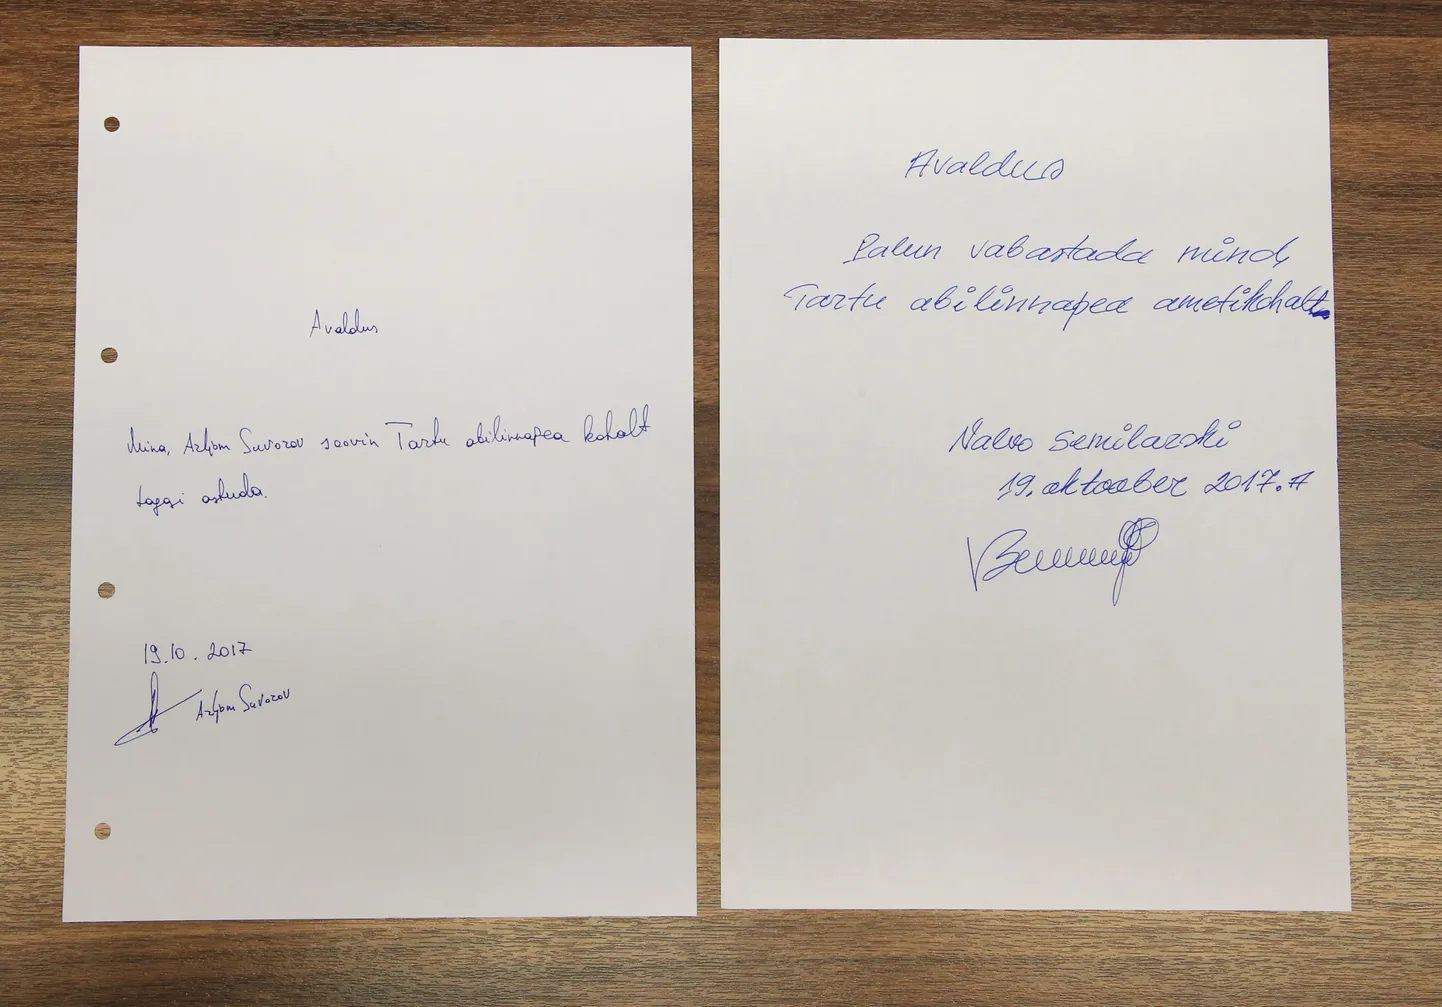 Avaldus
Mina, Artjom Suvorov soovin Tartu abilinnapea kohalt
taggi astuda.
19.10.2017
Artjom Suvorov
Avaldus
Palun vabastada mind,
Tartu abilinnapea ametikohalt.
Valvo Semilarski
19. oktoober 2017.a